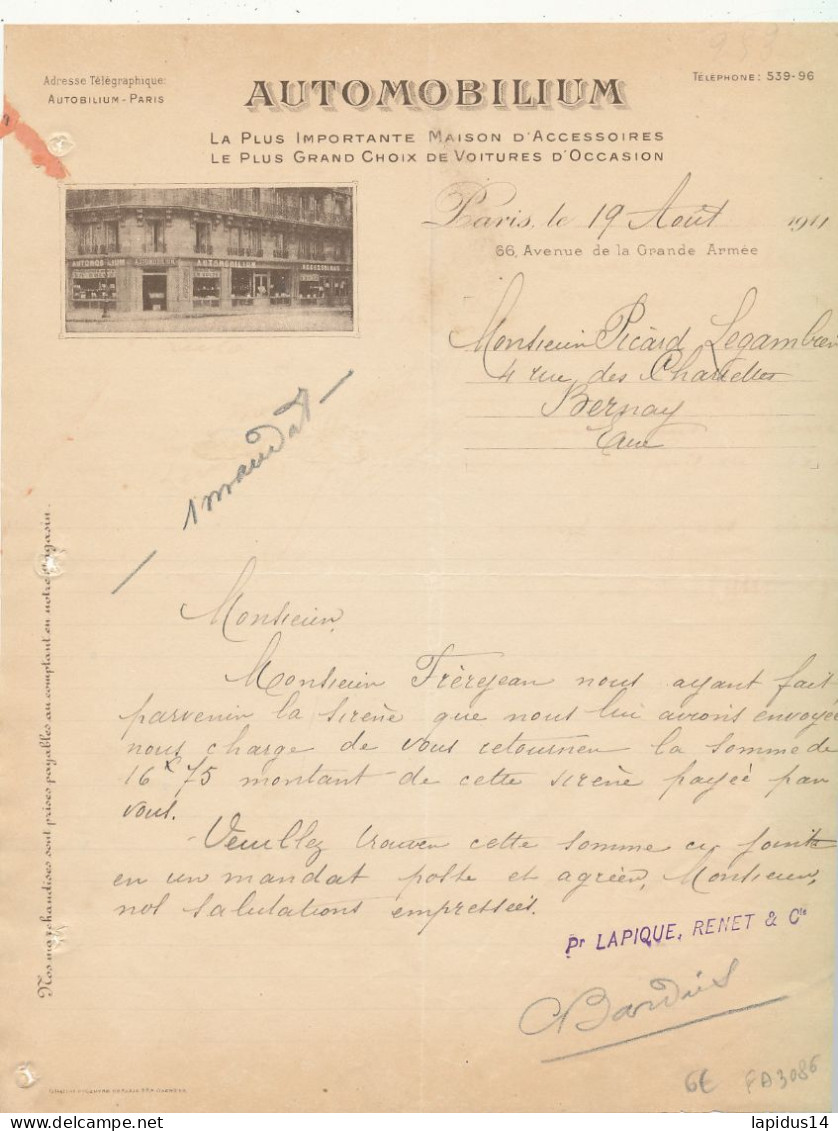 953
Adresse Télégraphique:
AUTOBILIUM-PARIS
AUTOMOBILIUM
TÉLÉPHONE: 539-96
LA PLUS IMPORTANTE MAISON D'ACCESSOIRES
LE PLUS GRAND CHOIX DE VOITURES D'OCCASION
AUTOMOBILIUM AUTOMOBILIUM ACCESSOIRES
Paris, le 19 Août 1911
66, Avenue de la Grande Armée
Monsieur Picard Legambier
4 rue des
Bernay
Eure
1 mandat
Nos marchandises sont prises payables au comptant en notre magasin.
Monsieur,
Monsieur Frèrejean nous ayant fait
parvenir la sirène que nous lui avions envoyée
nous charge de vous retourner la somme de
16f 75 montant de cette sirène payée par
vous.
Veuillez trouver cette somme ci jointe
en un mandat poste et agréer, Monsieur,
nos salutations empressées.
Pr LAPIQUE, RENET & Cie
6€ FA3086
lapidus14